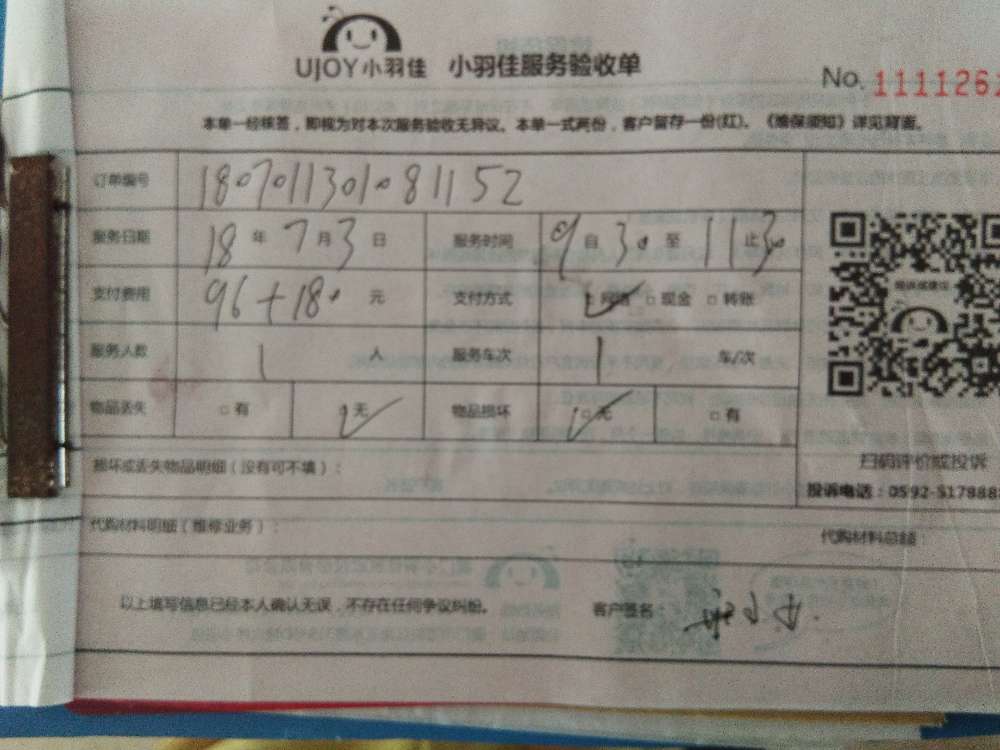 UJOY小羽佳 小羽佳服务验收单
No. 111126
本单一经核签，即视为对本次服务验收无异议。本单一式两份，客户留存一份(红)。《维保须知》详见背面。
订单编号 180701130108 1152
服务日期 18 年 7 月 3 日 服务时间 9 自 30 至 11 止 30
支付费用 96+180 元 支付方式 ☑网络 □现金 □转账
服务人数 1 人 服务车次 1 车/次
物品丢失 □有 ☑无 物品损坏 ☑无 □有
扫码评价或投诉
损坏或丢失物品明细（没有可不填）：
投诉电话：0592-517888
代购材料明细（维修业务）： 代购材料总额：
以上填写信息已经本人确认无误，不存在任何争议纠纷。 客户签名：